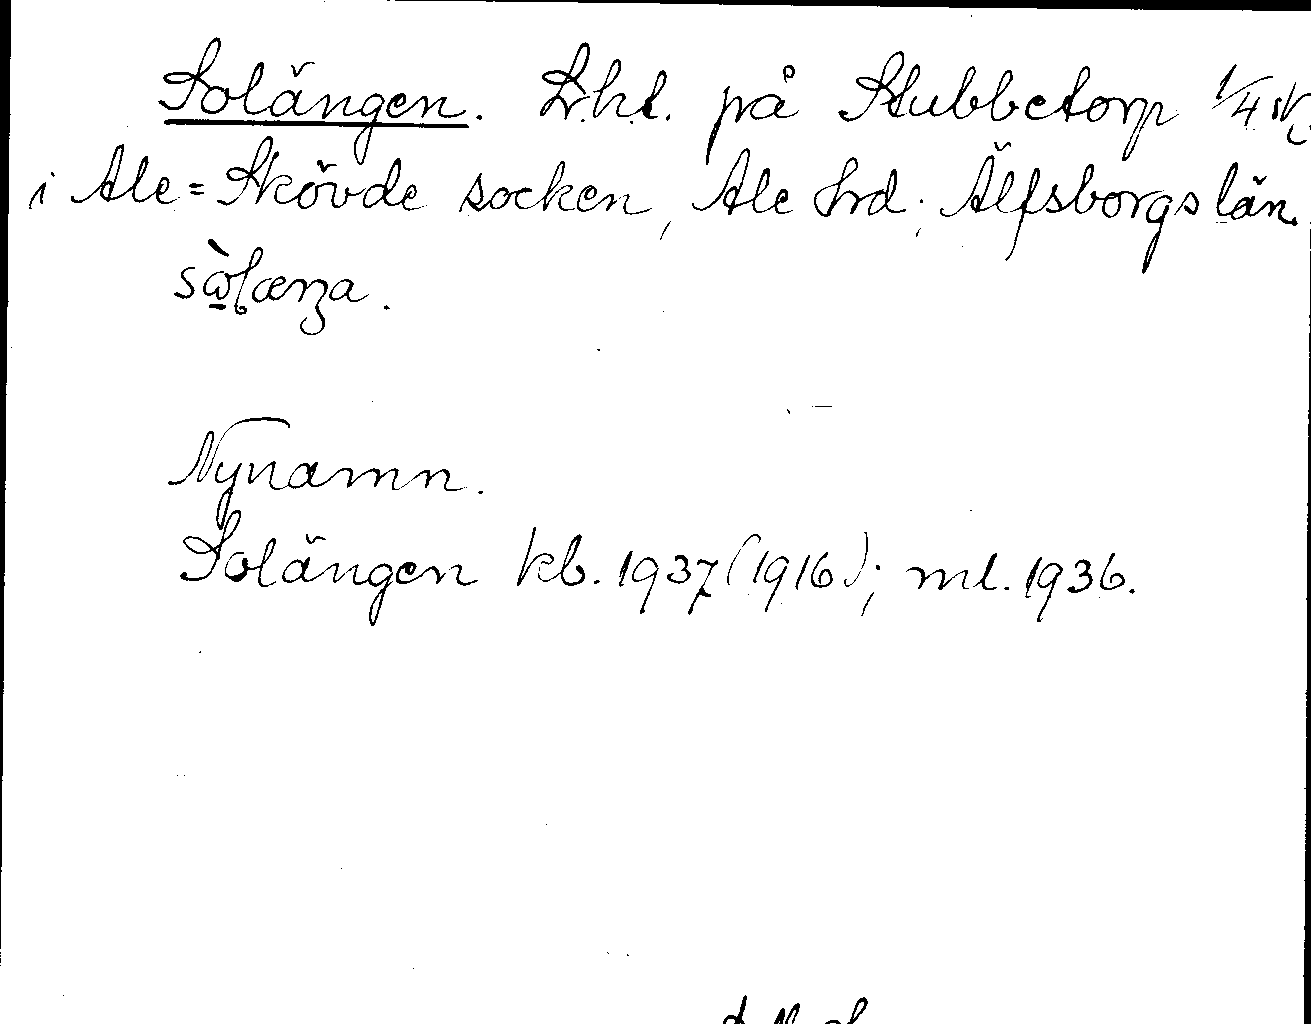 Solängen. Lht. på Stubbetorp 1/4
i Ale=Skövde socken, Ale hrd; Älfsborgs län.
Nynamn.
Solängen kb. 1937 (1916); ml. 1936.